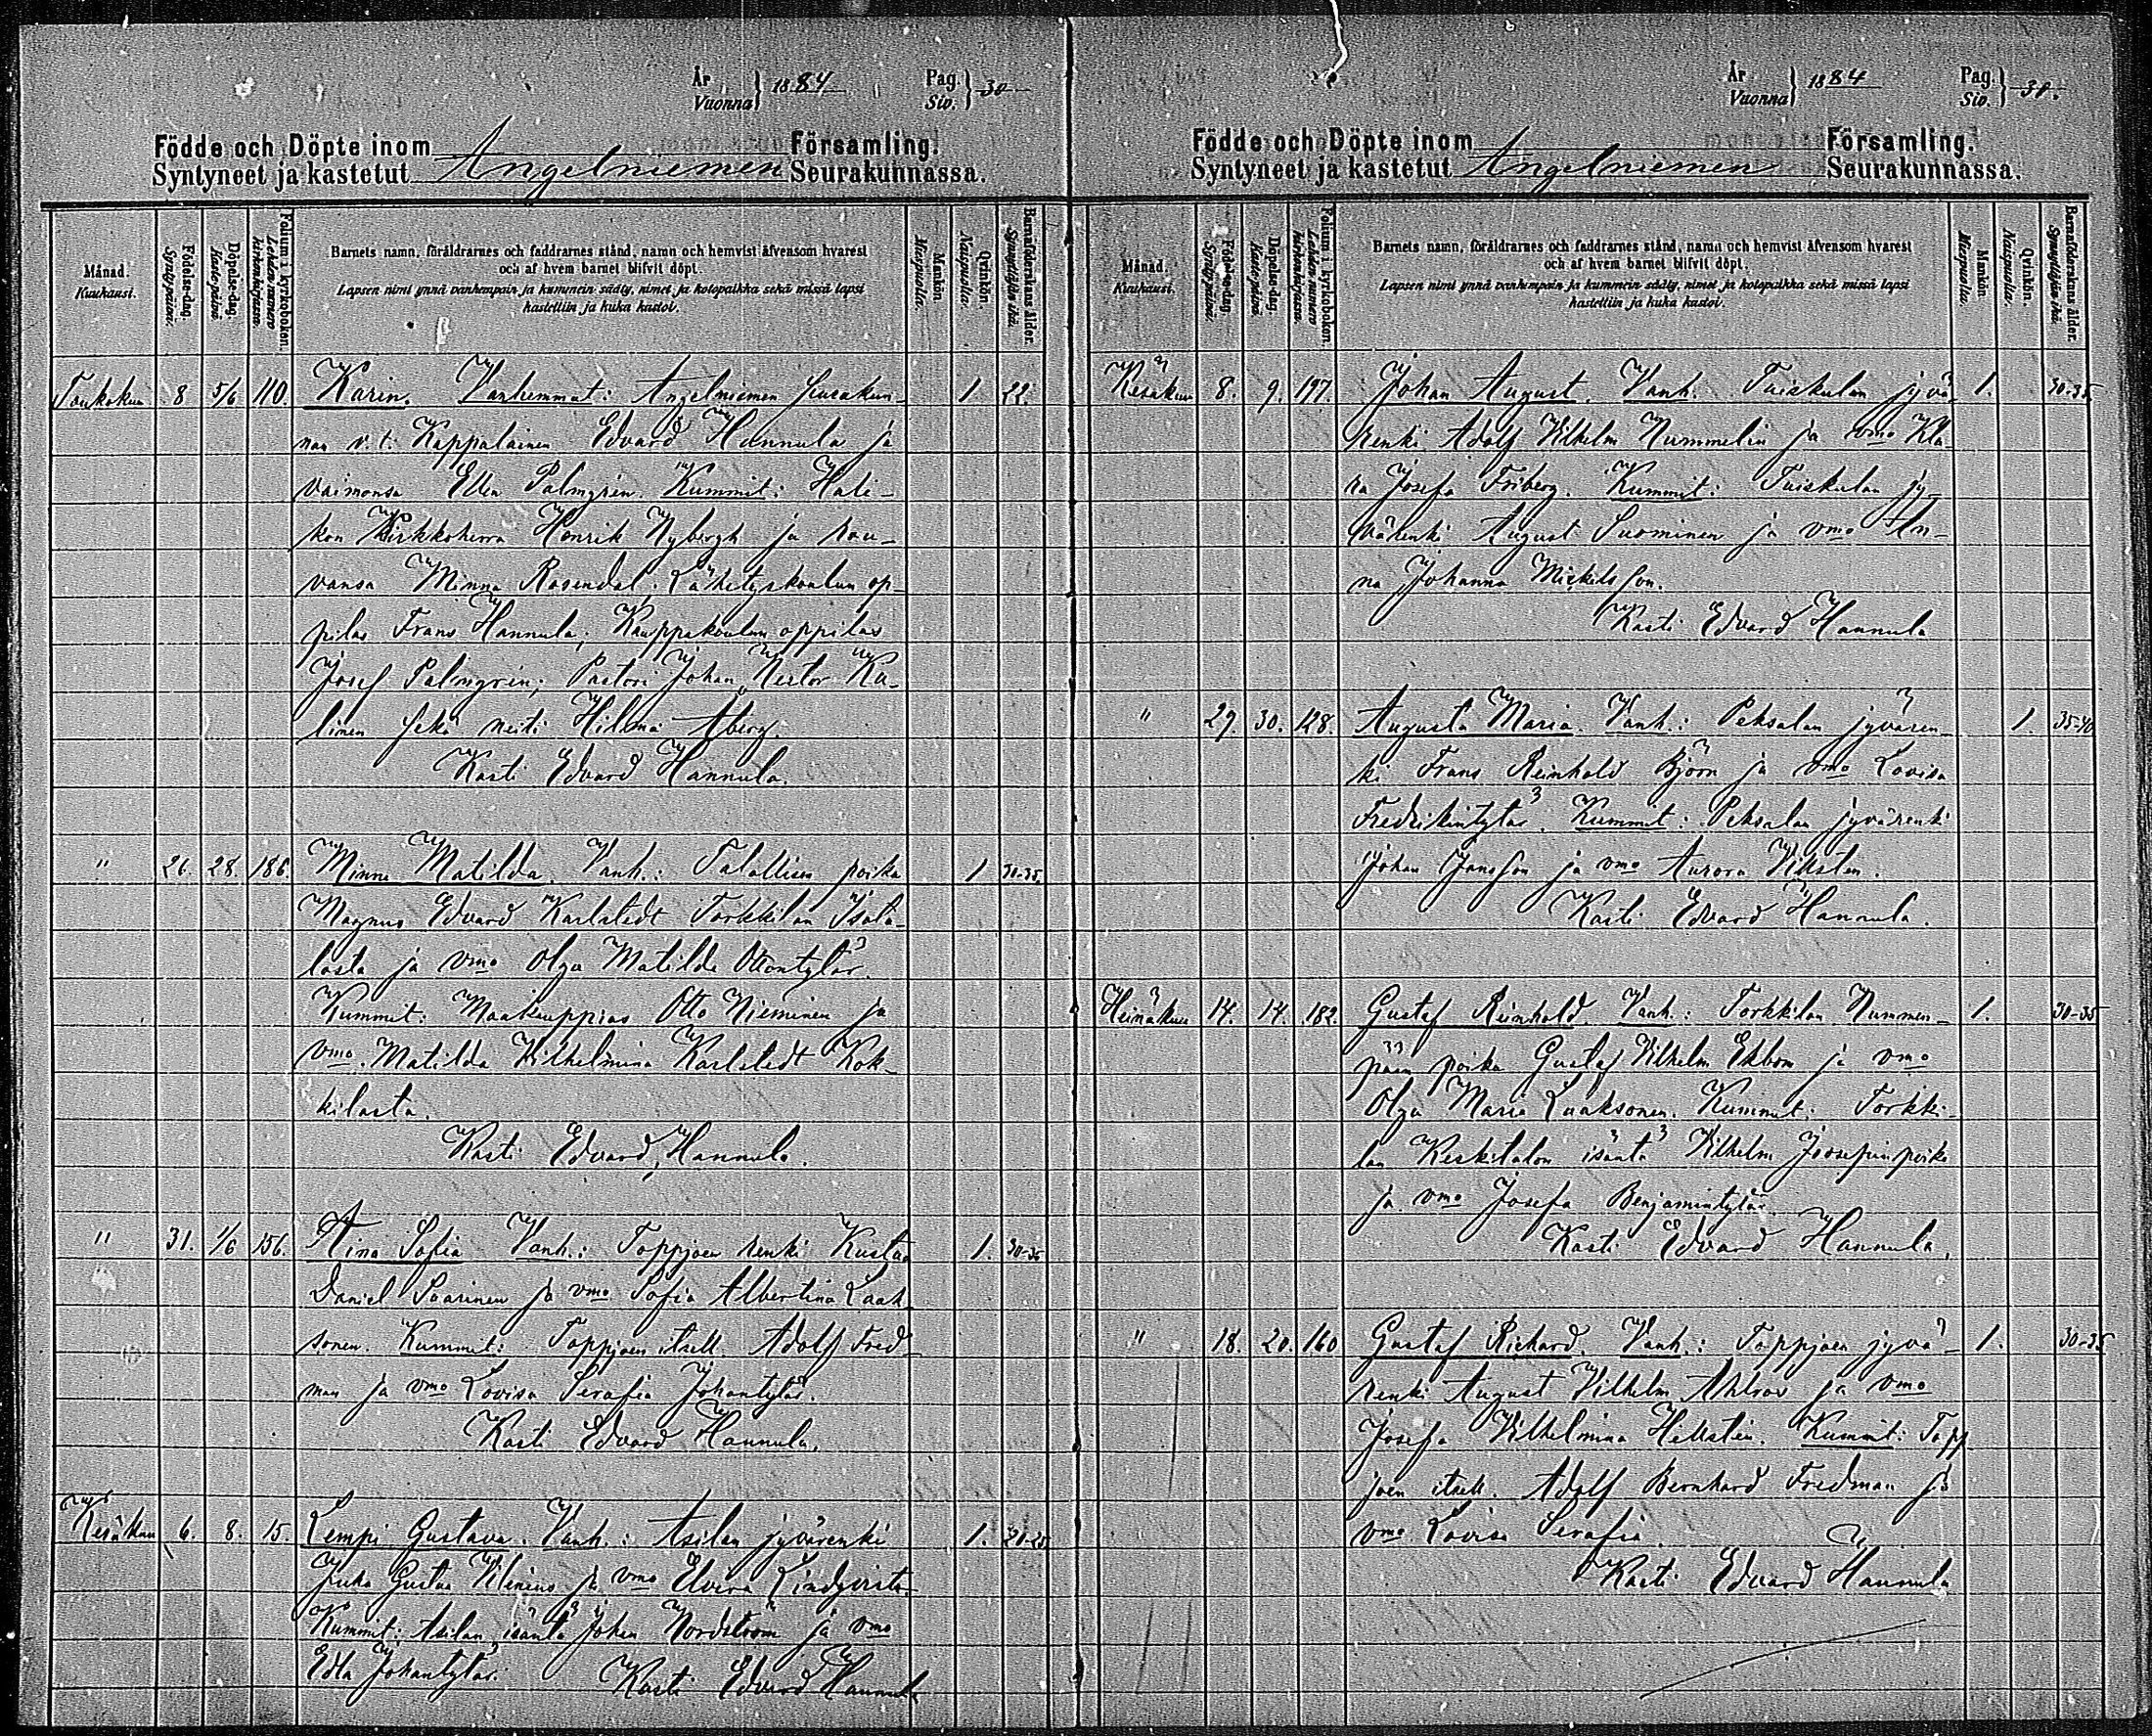 År
Vuonna } 1884
Pag.
Siv. } 30
Födde och Döpte inom Församling.
Syntyneet ja kastetut Angelniemen Seurakunnassa.
Månad.
Kuukausi.
Födelse-dag.
Syntypäivä.
Döpelse-dag.
Kastepäivä
Folium i kyrkoboken.
Lehden numero
kirkonkirjassa.
Barnets namn, föräldrarnes och faddrarnes stånd, namn och hemvist äfvensom hvarest
och af hvem barnet blifvit döpt.
Lapsen nimi ynnä vanhempain ja kummein sääty, nimet ja kotopaikka sekä missä lapsi
kastettiin ja kuka kastoi.
Mankön
Miespuolia.
Qvinkön.
Naispuolia.
Barnaföderskans ålder.
Synnyttäjän ikä.
Toukokuu 8 5/6 110. Karin. Vanhemmat: Angelniemen seurakun- 1 22.
nan v. t. Kappalainen Edvard Hannula ja
vaimonsa Ellen Palmgrén. Kummit: Hali-
kon Kirkkoherra Henrik Nybergh ja rou-
vansa Minna Rosendal. Lähetyskoulun op-
pilas Frans Hannula, Kauppakoulun oppilas
Josef Palmgrén; Pastori Johan Nestor Ka-
linen sekä neiti Hilma Åberg.
Kasti Edvard Hannula.
" 26. 28. 186. Minna Matilda. Vanh.: Talollisen poika 1 30-35.
Magnus Edvard Karlstedt Torkkilan Isota-
losta ja vmo Olga Matilda Ottontytär.
Kummit: Maakauppias Otto Nieminen ja
vmo. Matilda Vilhelmina Karlstedt Kok-
kilasta.
Kasti Edvard Hannula.
" 31. 1/6 156. Aina Sofia Vanh.: Toppjoen renki Kustaa 1. 30-35
Daniel Saarinen ja vmo Sofia Albertina Laak-
sonen. Kummit: Toppjoen itsell. Adolf Fred-
man ja vmo Lovisa Serafia Johantytär.
Kasti Edvard Hannula.
Kesäkuu 6. 8. 15. Lempi Gustava. Vanh.: Asilan jyvärenki 1. 20-25
Juha Gustaa Vilenius ja vmo Elvira Lindqvist.
Kummit: Asilan isäntä Johan Nordström ja vmo
Edla Johantytär. Kasti Edvard Hannula
År
Vuonna } 1884
Pag.
Siv. } 30.
Födde och Döpte inom Församling.
Syntyneet ja kastetut Angelniemen Seurakunnassa.
Månad.
Kuukausi.
Födelse-dag.
Syntypäivä.
Döpelse-dag.
Kastepäivä.
Folium i kyrkoboken.
Lehden numero
kirkonkirjassa.
Barnets namn, föräldrarnes och faddrarnes stånd, namn och hemvist äfvensom hvarest
och af hvem barnet blifvit döpt.
Lapsen nimi ynnä vanhempain ja kummein sääty, nimet ja kotopaikka sekä missä lapsi
kastettiin ja kuka kastoi.
Mankön
Miespuolia.
Qvinkön.
Naispuolia.
Barnaföderskans ålder.
Synnyttäjän ikä.
Kesäkuu 8. 9. 197. Johan August. Vanh. Tuiskulan jyvä- 1. 30-35.
renki Adolf Vilhelm Nummelin ja vmo Kla-
ra Josefa Friberg. Kummit: Tuiskulan jy-
värenki August Suominen ja vmo An-
na Johanna Mickelsson.
Kasti Edvard Hannula
" 29. 30. 128. Augusta Maria. Vanh.: Peksalan jyvären- 1. 35-40
ki Frans Reinhold Björn ja vmo Lovisa
Fredrikintytär. Kummit: Peksalan jyvärenki
Johan Jansson ja vmo Aurora Vikstén.
Kasti Edvard Hannula.
Heinäkuu 14. 14. 182. Gustaf Reinhold. Vanh.: Torkkilan Nummen- 1. 30-35
pään poika Gustaf Vilhelm Ekbom ja vmo
Olga Maria Laaksonen. Kummit: Torkki-
lan Keskitalon isäntä Vilhelm Joosepinpoika
ja vmo Josefa Benjamintytär.
Kasti Edvard Hannula.
" 18. 20. 160 Gustaf Richard. Vanh.: Toppjoen jyvä- 1. 30-35
renki August Vilhelm Ahlros ja vmo
Josefa Vilhelmina Hellstén. Kummit: Topp
joen itsell. Adolf Bernhard Fredman ja
vmo Lovisa Serafia.
Kasti Edvard Hannula